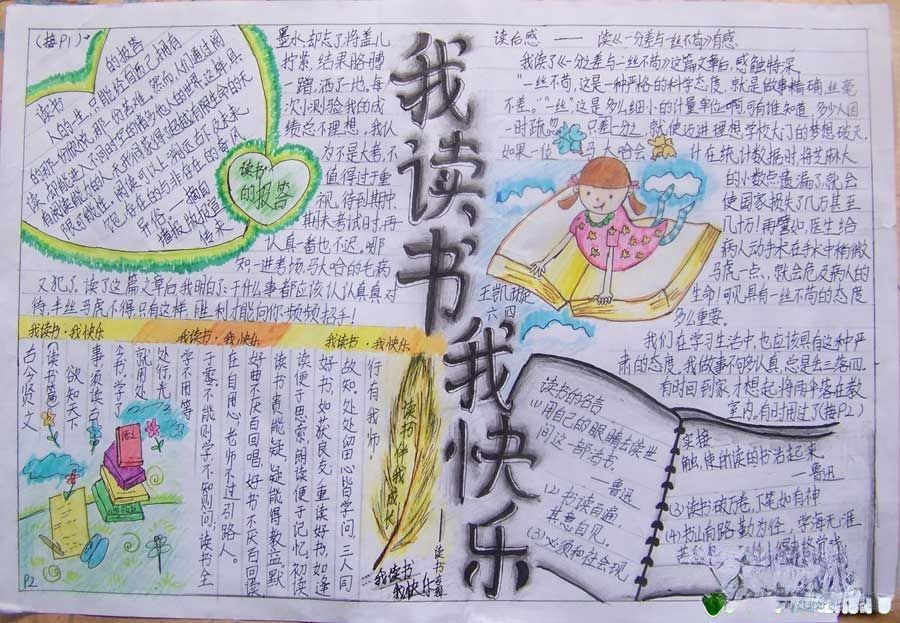 我读书、我快乐
读后感——读《一分差与一丝不苟》有感
我读了《一分之差与一丝不苟》这篇文章后,感触特深
"一丝不苟,这是一种严格的科学态度,就是做事精确,丝毫
不差。"一丝"这是多么细小的计量单位啊,可有谁知道,多少人因
一时疏忽,只差一分之,就使迈进理想学校大门的梦想破灭。
如果一位马大哈会计在统计数据时,将芝麻大
的小数点遗漏了,就会
使国家损失了几万甚至
几十万!再譬如,医生给
病人动手术,在手术中稍微
马虎一点,就会危及病人的
生命!可见具有一丝不苟的态度
多么重要。
我们在学习生活中,也应该具有这种严
肃的态度。我做事不够认真,总是丢三落四。
有时回到家才想起将雨伞落在教
室内,有时用过了(接P2)
王凯旋
六、四
(接P1)
墨水,却忘了将盖儿
拧紧,结果胳膊一
蹭,洒了一地,每
次小测验我的成
绩总不理想,我认
为不是大考,不
值得过于重
视,得到期中
期末考试时,再
认真一者也不迟。哪
知一进考场,马大哈的毛病
又犯了,读了这篇文章后,我明白了:干什么事都应该认认真真对
待,半丝马虎不得,只有这样,胜利才能向你频频招手!
读书的报答
人的一生,只能给自己拥有
的那份欣悦,那份苦难,然而,人们通过阅
读,却能进入不同时空的诸多他人的世界,这样,具
有阅读能力的人,无形间获得了超越有限生命的无
限可能性。阅读可以让人
饱览存在的与非存在的奇风
异俗。 摘自
读书
的报答
我读书·我快乐
我读书·我快乐
我读书·我快乐
古今贤文
读书篇:
欲知天下
事,须读古
今书;学了
就用处
处行光,
学不用等
于零。不能则学,不知则问;读书全
在自用心,老师不过引路人。
好曲不厌百回唱,好书不厌百回读
读书贵能疑,疑能得教益。默
读便于思索,朗读便于记忆。初
好书,如获良友;重读好书,如逢
故知。处处留心皆学问,三人同
行有我师。
语文
读书伴我成长
我读书
我快乐
读书的名言
(1)用自己的眼睛去读世
间这一部活书。
——鲁迅
(2)书读百遍,
其意自见。
(3)必须和社会现
实接
触,使的读的书活起来。
——鲁迅
(3)读书破万卷,下笔如有神
(4)书山有路勤为径,学海无涯
P2